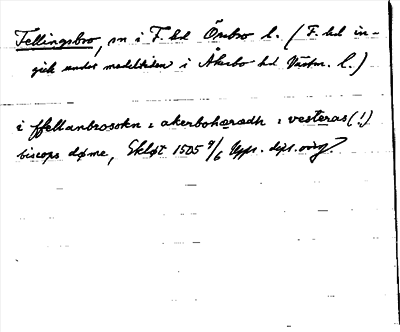 Fellingsbro, sn i F. hd Örebro l. (F. hd in-
gick under medeltiden i Åkerbo hd Västm. l.)
i ffellanbrosokn i akerbohæradh i vesteras (!)
biscops døme, Skløt 1505 9/6 Upps. dipl. orig.